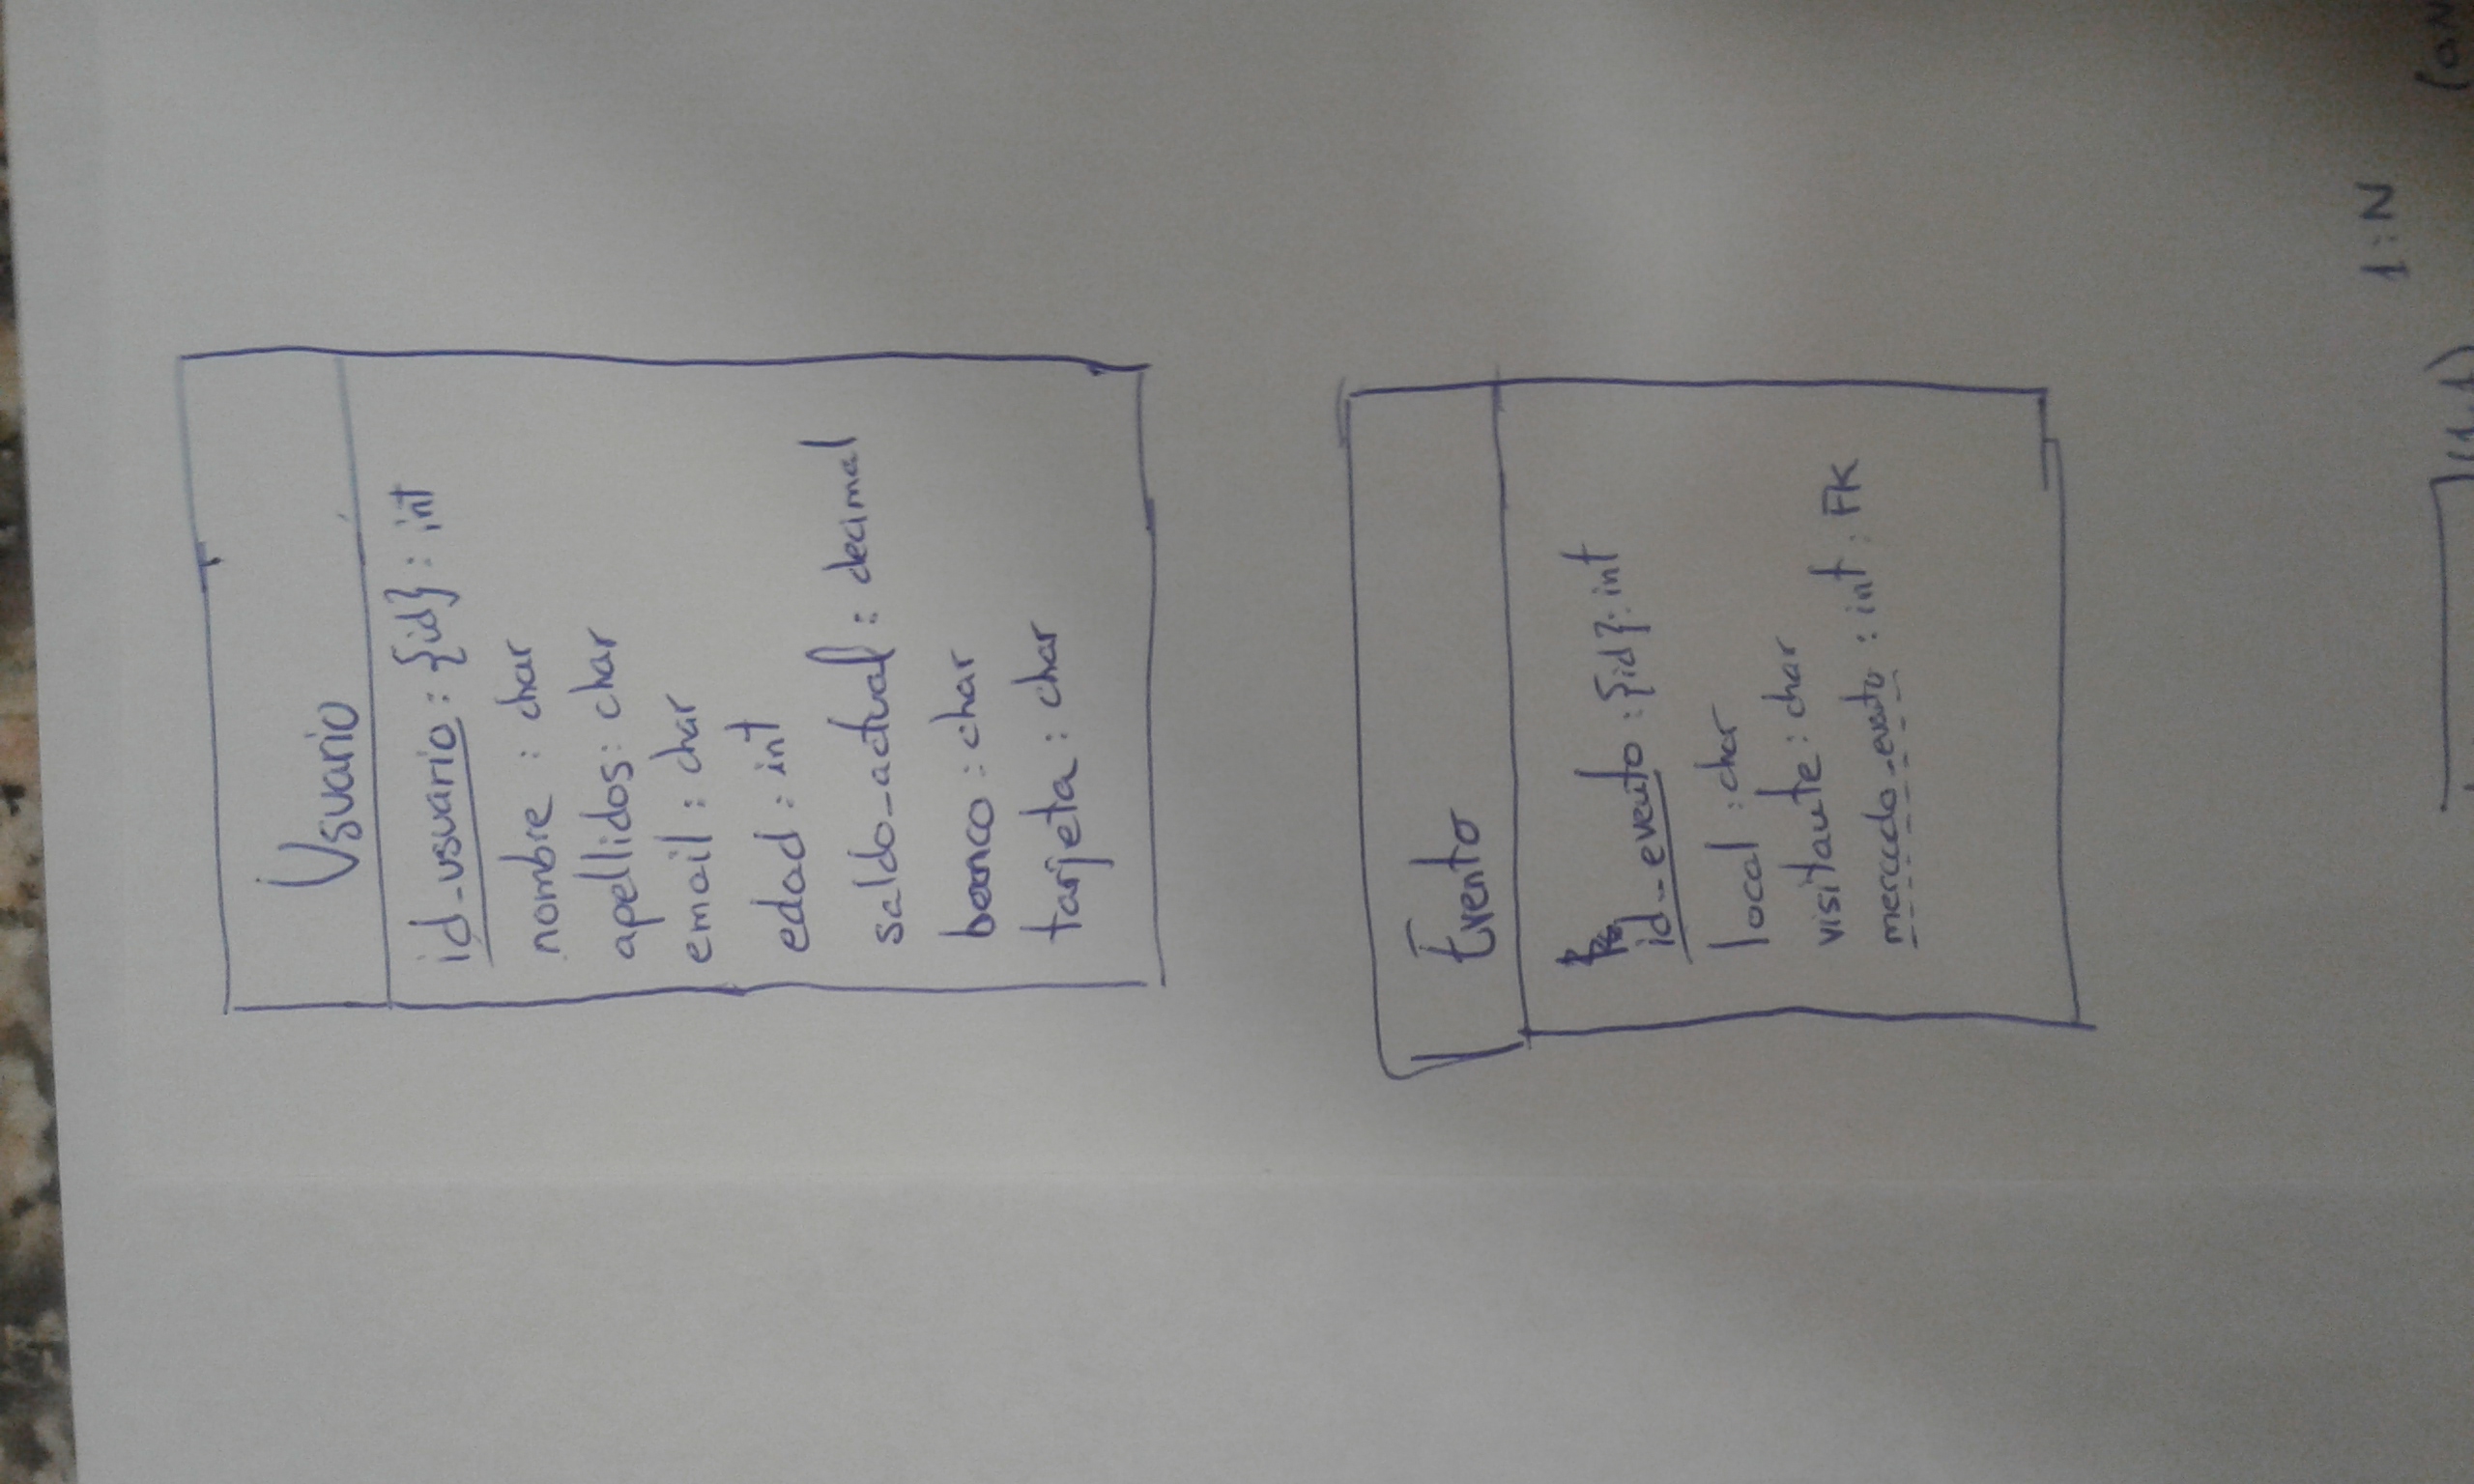 Usuario
id_usuario : {id} : int
nombre : char
apellidos : char
email : char
edad : int
saldo_actual : decimal
banco : char
tarjeta : char
Evento
id_evento : {id} : int
local : char
visitante : char
mercado_evento : int : FK
1:N
(1,1)